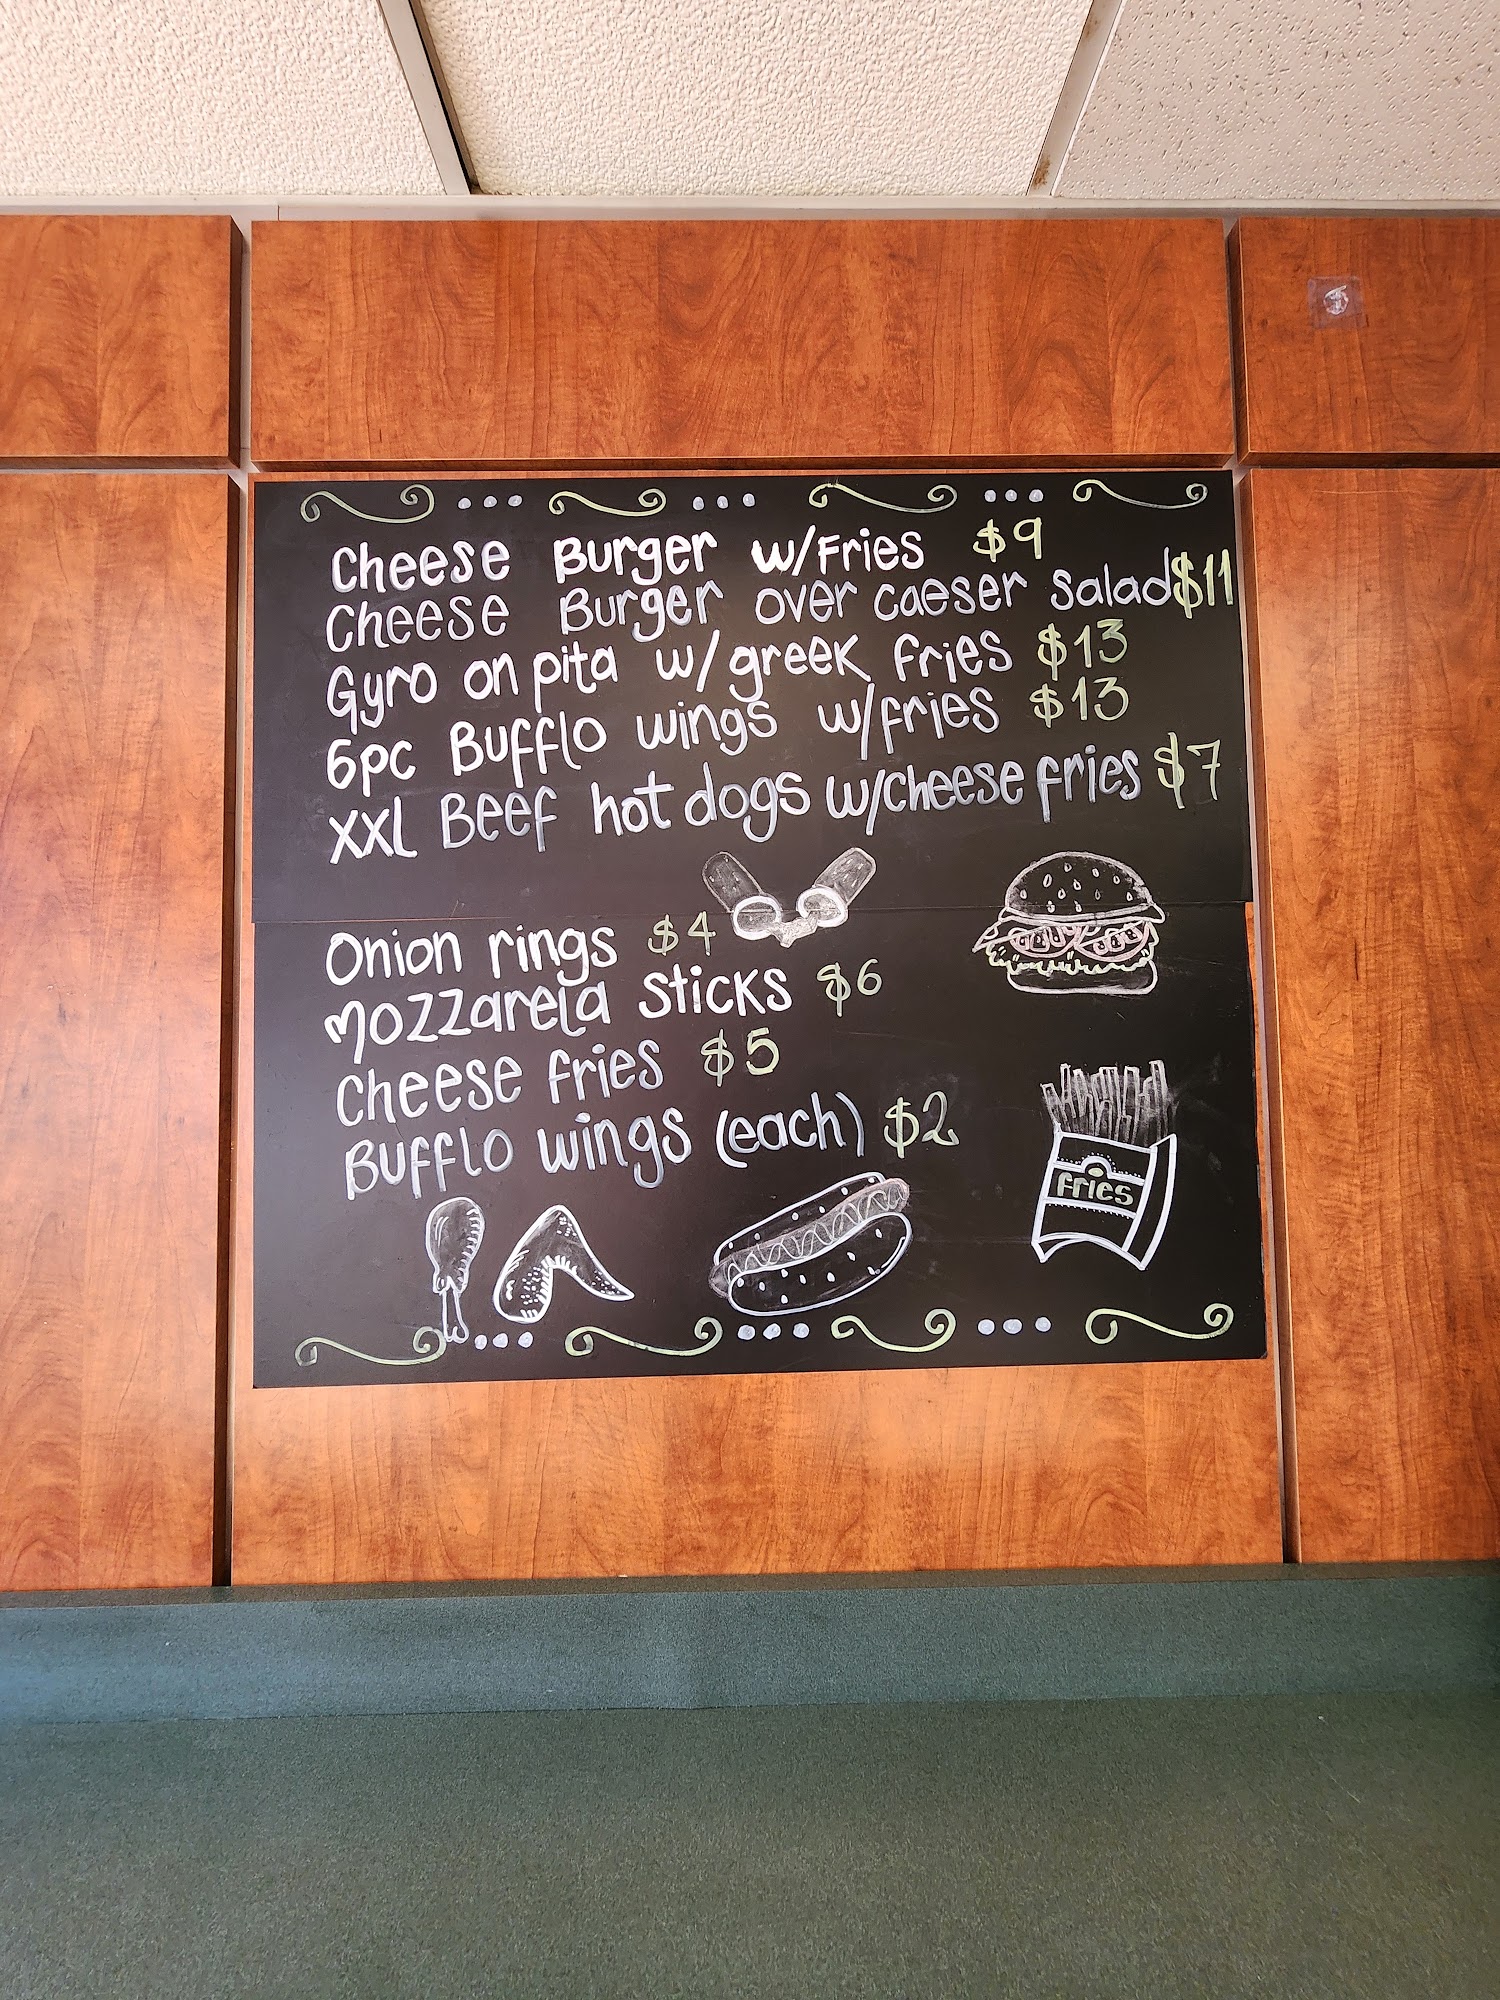 Cheese Burger w/Fries $9
Cheese Burger over caeser salad $11
Gyro on pita w/greek fries $13
6pc Bufflo wings w/fries $13
XXL Beef hot dogs w/cheese fries $7
Onion rings $4
Mozzarela sticks $6
Cheese fries $5
Bufflo wings (each) $2
Fries